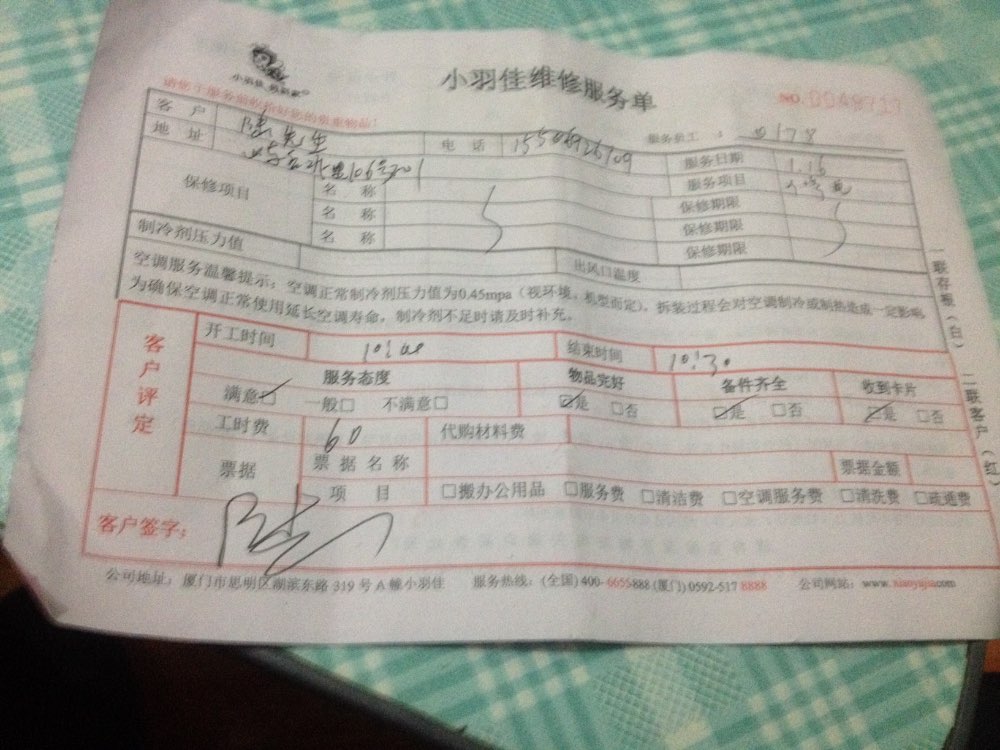 小羽佳维修服务单
小羽佳
NO.
请您于服务前收拾好您的贵重物品!
服务员工: 0178
客户 陈先生 电话 服务日期 1.16
地址 106号201 服务项目
保修项目 名称 保修期限
名称 保修期限
名称 保修期限
制冷剂压力值 出风口温度
空调服务温馨提示:空调正常制冷剂压力值为0.45mpa(视环境、机型而定),拆装过程会对空调制冷或制热造成一定影响,
为确保空调正常使用延长空调寿命,制冷剂不足时请及时补充。
一联存根(白) 二联客户(红)
客户评定
开工时间 10:00 结束时间 10:30
服务态度 物品完好 备件齐全 收到卡片
满意□ 一般□ 不满意□ □是 □否 □是 □否 □是 □否
工时费 60 代购材料费
票据 票据名称 票据金额
项目 □搬办公用品 □服务费 □清洁费 □空调服务费 □清洗费 □疏通费
客户签字: 陈
公司地址:厦门市思明区湖滨东路 319 号 A 幢小羽佳 服务热线:(全国) 400-6055888 (厦门) 0592-517 8888 公司网站:www.xiaoyujia.com